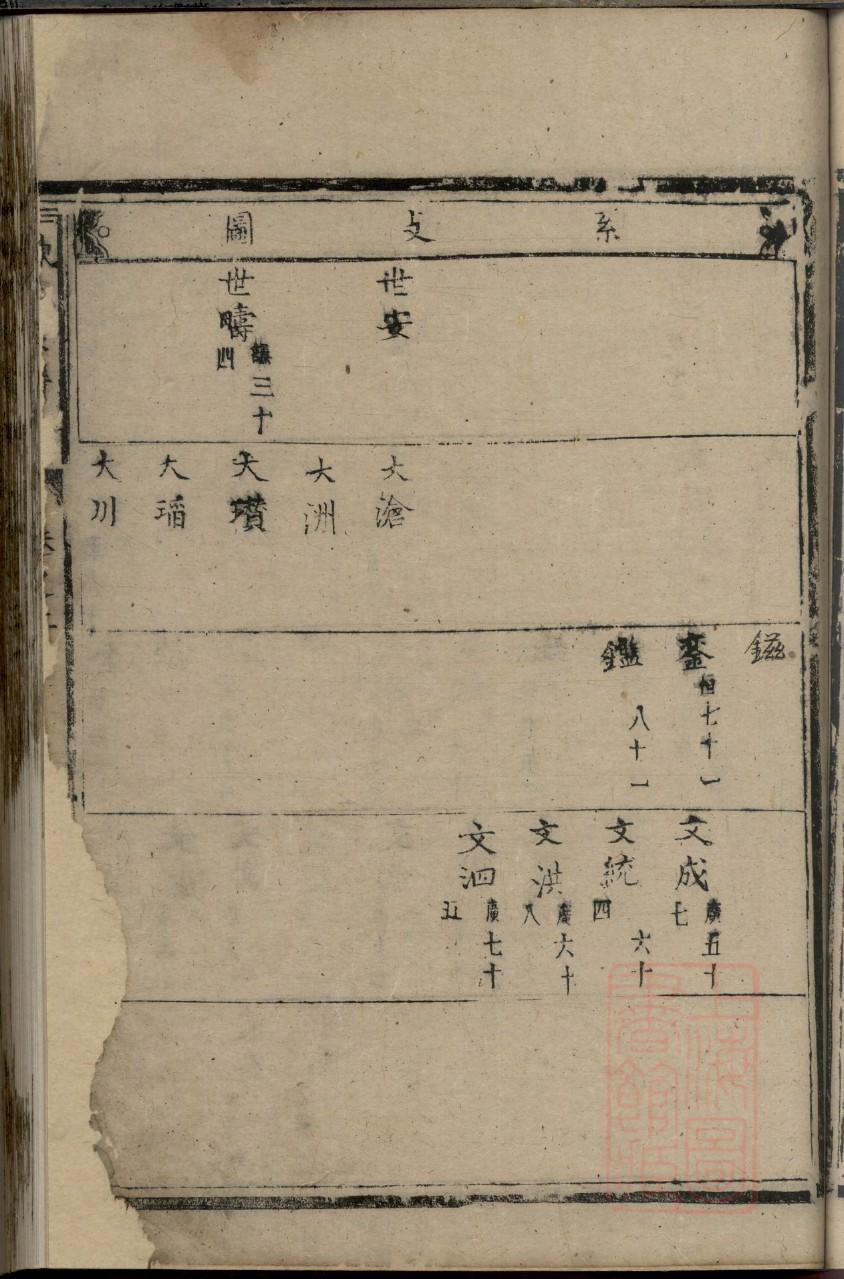 系支圖
世安
世疇 三十四
大滄
大洲
大瓚
大瑫
大川
鎡
銮 恒七十一
鑑 八十一
文成 廣五十七
文統 六十四
文洪 廣六十八
文泗 廣七十五
卷之二